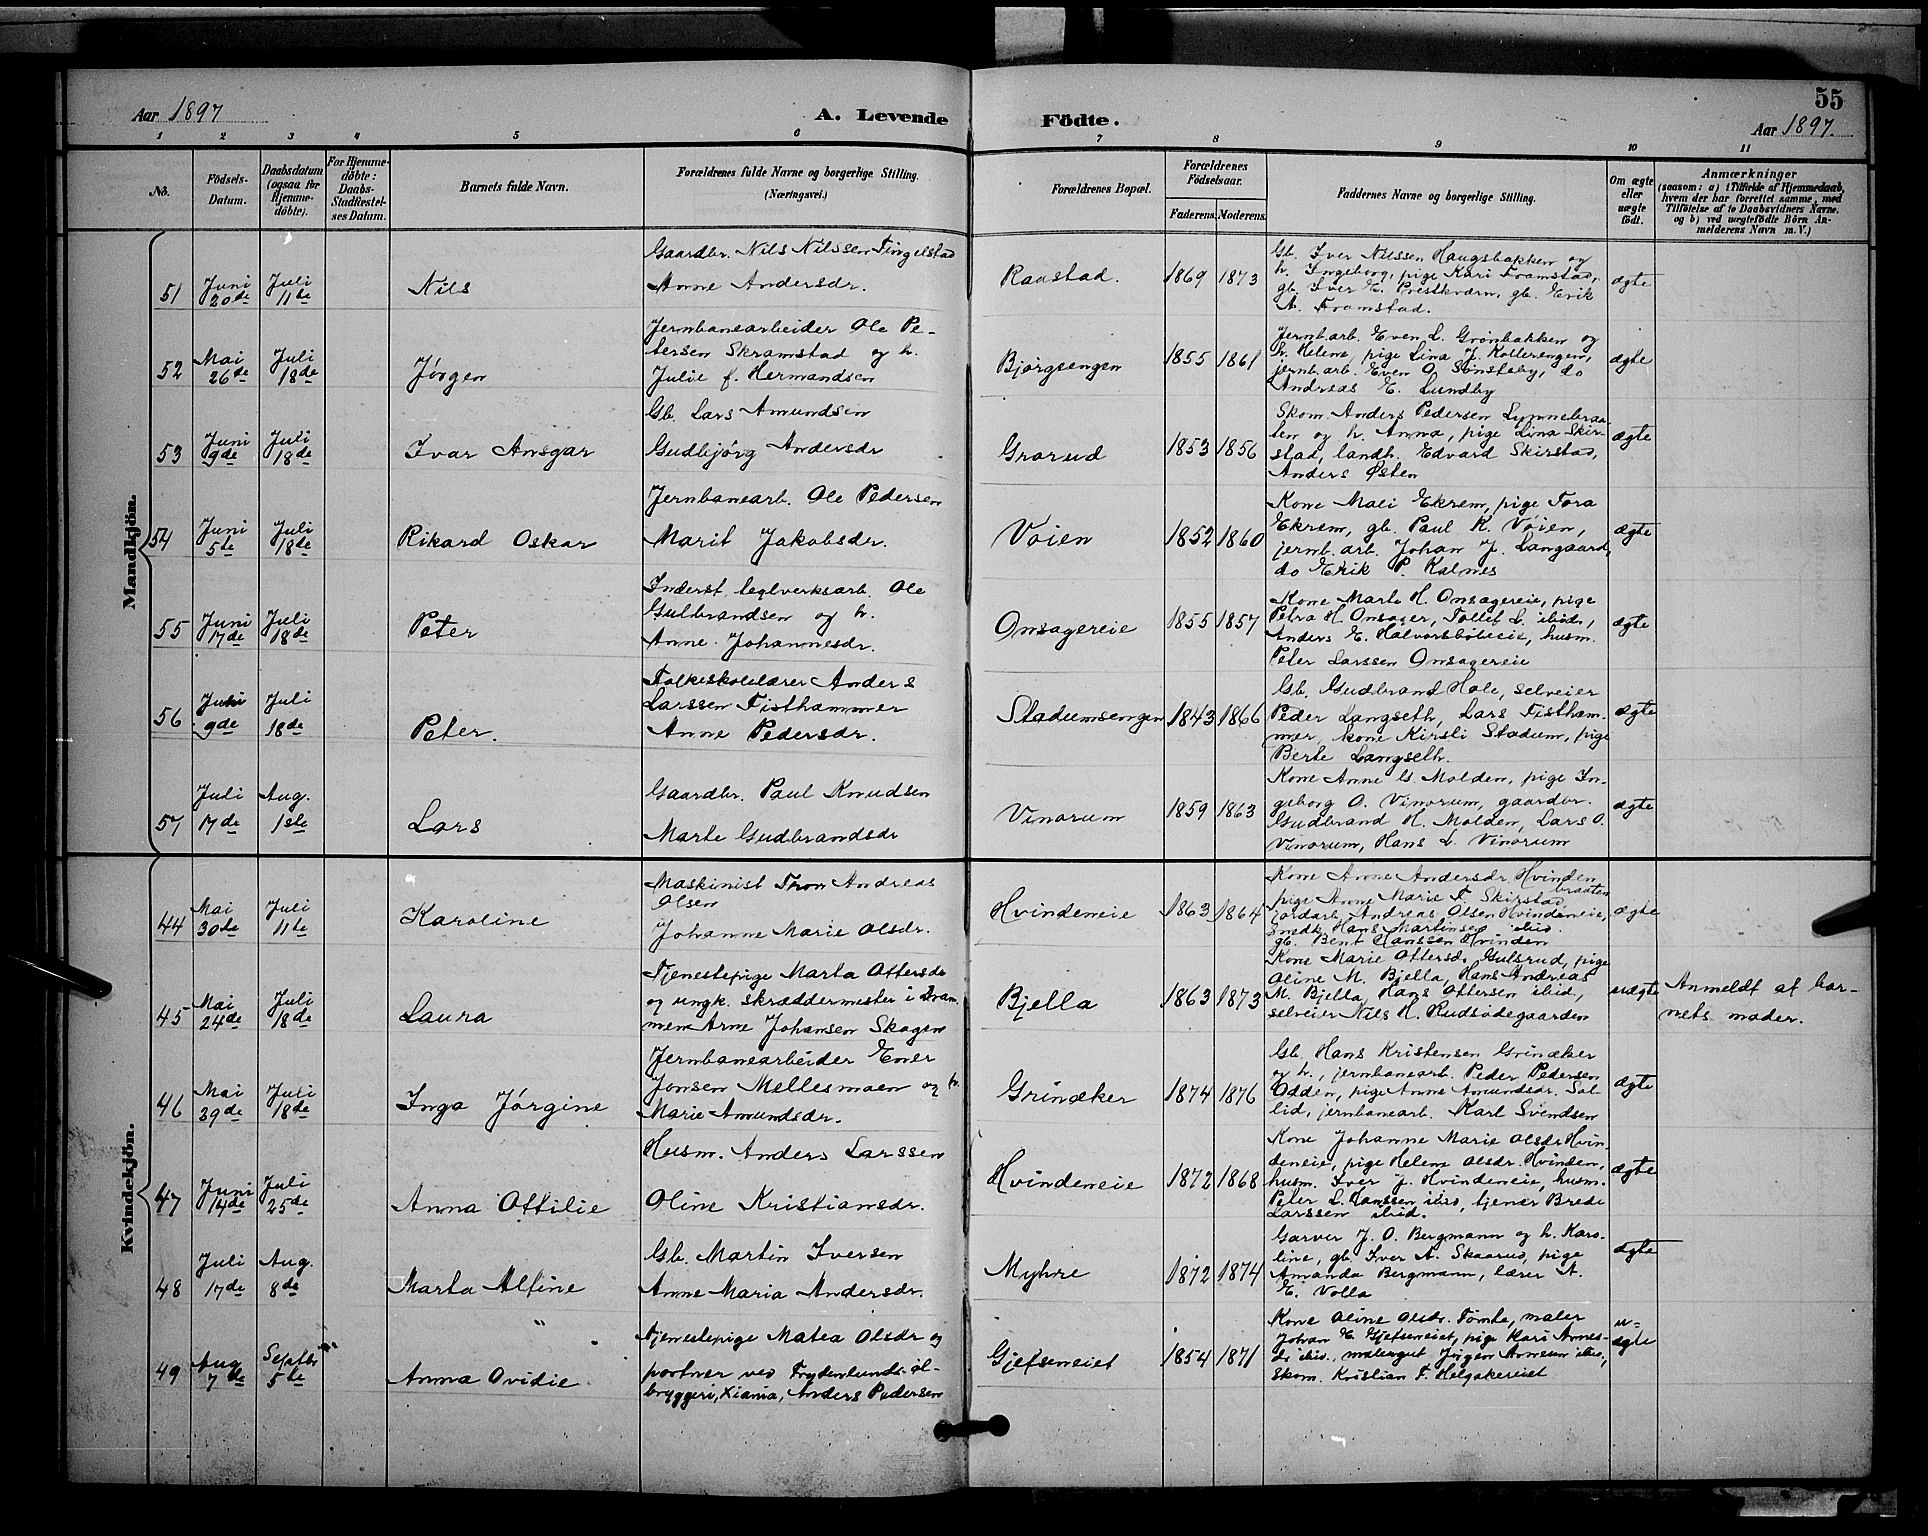 55
Aar 1897
A. Levende
Födte.
Aar 1897.
1 2 3 4 5 6 7 8 9 10 11
No.
Födsels-
Datum.
Daabsdatum
(ogsaa for
Hjemme-
döbte).
For Hjemme-
döbte:
Daabs-
Stadfæstel-
ses Datum.
Barnets fulde Navn.
Forældrenes fulde Navne og borgerlige Stilling.
(Næringsvei.)
Forældrenes Bopæl.
Forældrenes
Födselsaar.
Faderens.
Moderens.
Faddernes Navne og borgerlige Stilling.
Om ægte
eller
uægte
födt.
Anmærkninger
(saasom: a) i Tilfælde af Hjemmedaab,
hvem der har forrettet samme, med
Tilföielse af to Daabsvidners Navne,
og b) ved uægtefödte Börn An-
melderens Navn m. V.)
Mandkjön.
51
Juni
20de
Juli
11te
Nils
Gaardbr. Nils Nilssen Tingelstad
Anne Andersdr.
Raastad.
1869
1873
Gb. Iver Nilssen Haugsbakken og
h. Ingeborg, pige Kari Framstad,
gb. Iver E. Prestkværn, gb. Erik
A. Framstad.
ægte
52
Mai
26de
Juli
18de
Jörgen
Jernbanearbeider Ole Pe-
tersen Skramstad og h.
Julie f. Hermandsen
Bjørgsengen
1855
1861
Jernb.arb. Even L. Grönbakken og
h. Helene, pige Lina J. Kollerengen,
jernb.arb. Even O. Sönsteby, do
Andreas E. Lundby
ægte
53
Juni
9de
Juli
18de
Ivar Ansgar
Gb. Lars Amundsen
Gudbjörg Andersdr
Grorud
1853
1856
Skom. Anders Pedersen Lynnebraa-
ten og h. Anna, pige Lina Skir-
stad, landh. Edvard Skirstad,
Anders Østen
ægte
54
Juni
5te
Juli
18de
Rikard Oskar
Jernbanearb. Ole Pedersen
Marit Jakobsdr.
Vöien
1852
1860
Kone Mali Ekrem, pige Tora
Ekrem, gb. Paul K. Vöien,
jernb.arb. Johan J. Langaard,
do Erik P. Kalnes
ægte
55
Juni
17de
Juli
18de
Peter
Inderst, teglverksarb. Ole
Gulbrandsen og h.
Anne Johannesdr.
Onsagereie
1855
1857
Kone Marte H. Onsagereie, pige
Petra H. Onsager, Tollef L. ibid.,
Anders E. Halvorsböleeie, husm.
Peter Larssen Onsagereie
ægte
56
Juni
9de
Juli
18de
Peter.
Folkeskolelærer Anders
Larssen Fisthammer
Anne Pedersdr.
Stadumsengen
1843
1866
Gb. Gudbrand Hole, selveier
Peder Langseth, Lars Fistham-
mer, kone Kirsti Stadum, pige
Berte Langseth.
ægte
57
Juli
17de
Aug.
1ste
Lars
Gaardbr. Paul Knudsen
Marte Gudbrandsdr
Vinorum
1859
1863
Kone Anne G. Molden, pige In-
geborg O. Vinorum, gaardbr.
Gudbrand H. Molden, Lars O.
Vinorum, Hans L. Vinorum
ægte
Kvindekjön.
44
Mai
30de
Juli
11te
Karoline
Maskinist Thor Andreas
Olsen
Johanne Marie Olsdr.
Hvindeneie
1863
1864
Kone Anne Andersdr. Hvinden
braaten
pige Anne Marie F. Skirstad,
jordarb. Andreas Olsen Hvindeneie,
smedk. Hans Martinsen ibid.
gb. Bent Hanssen Hvinden
ægte
45
Mai
24de
Juli
18de
Laura
Tjenestepige Marta Ottersdr
og ungk. skræddermester i Dram-
men Arne Johansen Skogen
Bjella
1863
1873
Kone Marie Ottersd. Gulsrud, pige
Oline M. Bjella, Hans Andreas
M. Bjella, Hans Ottersen ibid,
selveier Nils H. Rudsödegaarden
uægte
Anmeldt af bar-
nets moder.
46
Mai
39de
Juli
18de
Inga Jörgine
Jernbanearbeider Ener
Jonsen Mellesmoen og h.
Marie Amundsdr.
Grinaker
1874
1876
Gb. Hans Kristensen Grinaker
og h., jernbanearb. Peder Pedersen
Odden, pige Anne Amundsdr. Sol-
lid, jernbanearb. Karl Svendsen
ægte
47
Juni
14de
Juli
25de
Anna Ottilie
Husm. Anders Larssen
Oline Kristiansdr.
Hvindeneie
1872
1868
Kone Johanne Marie Olsdr Hvin-
deneie, pige Helene Olsdr. Hvinden,
husm. Iver J. Hvindeneie, husm.
Peter L. Hanssen ibid, tjener Brede
Larssen ibid.
ægte
48
Juli
17de
Aug.
8de
Marta Alfine
Gb. Martin Iversen
Anne Maria Andersdr.
Myhre
1872
1874
Garver J. O. Bergmann og h. Karo-
line, gb. Iver A. Skaarud, pige
Amanda Bergmann, lærer A.
E. Volla
ægte
49
Aug
7de
Septbr
5te
Anna Ovidie
Tjenestepige Matea Olsdr og
portner ved Frydenlunds öl-
bryggeri, Xiania, Anders Pedersen
Gjefseneiet
1854
1871
Kone Oline Olsdr. Tömte, maler
Johan E. Gjefseneiet, pige Kari Arnes-
dr ibid., malergut Jörgen Arnesen ibid.,
Skom. Kristian F. Helgakereiet
u-
ægte